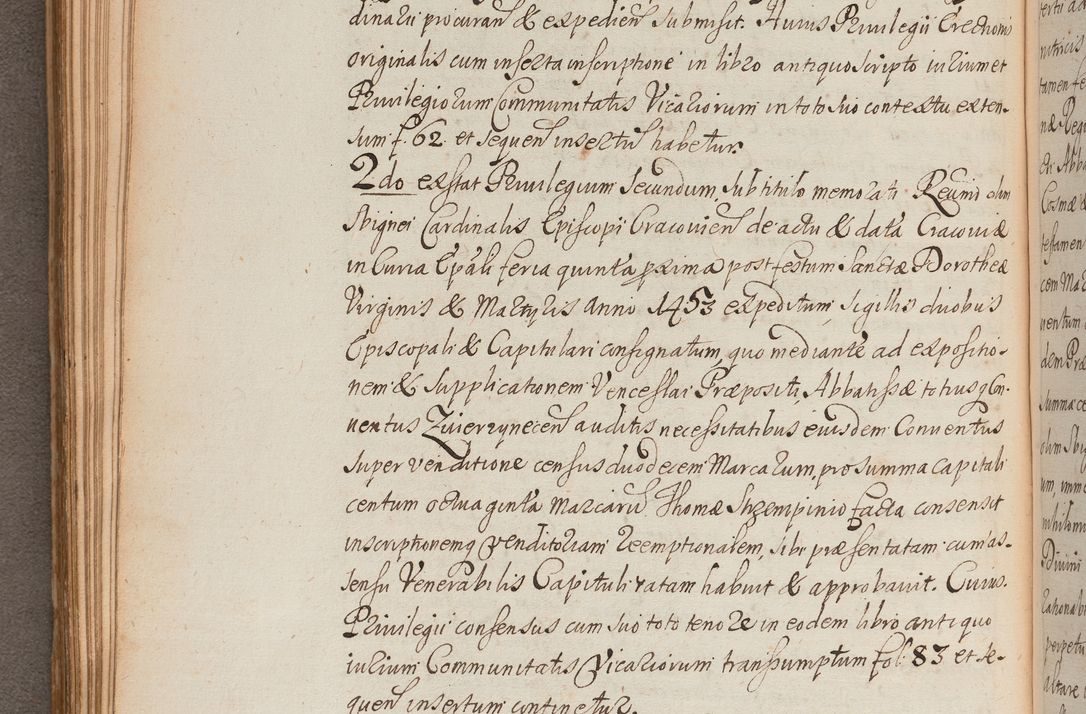 dinarii procuran̄ & expedien̄ submisit. Huius Privilegii Erectionis
originalis cum inserta inscriptione in libro antiquo scripto iurium et
Privilegiorum Communitatis Vicariorum in toto suo contextu exten-
sum f. 62 et sequen̄ insertū habetur.
2do exstat Privilegium secundum, sub titulo memorati Reumi olim
Sbignei Cardinalis Episcopi Cracovien̄ de actu & datā Cracoviæ
in Curia Epāli feria quinta proxima post festum Sanctæ Dorotheæ
Virginis & Martyris anno 1453 expeditum, sigillis duobus
Episcopali & Capitulari consignatum, quo mediante ad expositio-
nem & supplicationem Venceslai Præpositi, Abbatissæ totiusq Con-
ventus Zvierzynecen̄ auditis necessitatibus eiusdem Conventus
super venditione census duodecem Marcarum, pro summa capitali
centum octuaginta marcarū Thomæ Strzempinio facta consensit
inscriptionemq venditoriam reemptionalem, sibi præsentatam cum as-
sensu Venerabilis Capituli ratam habuit & approbavit. Cuius
Privilegii consensus cum suo toto tenore in eodem libro antiquo
iurium Communitatis Vicariorum transsumptum fol: 83 et se-
quen̄ insertum continetur.